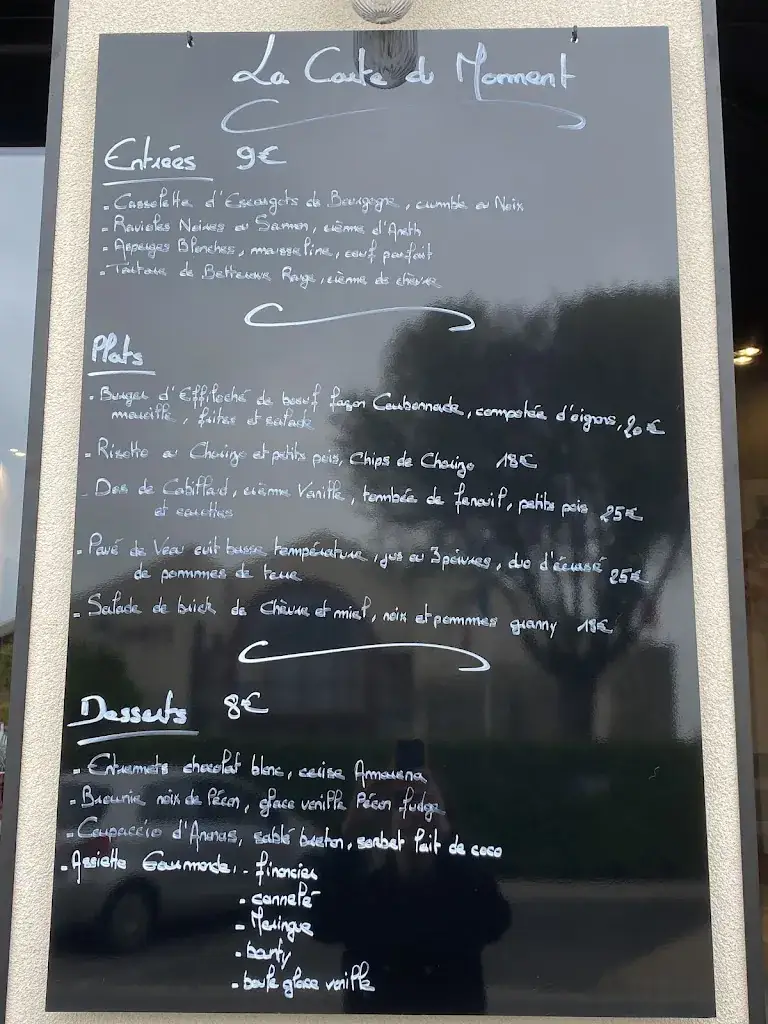 La Carte du Moment
Entrées 9€
- Cassolette d'Escargots de Bourgogne, crumble au Noix
- Ravioles Noires au Saumon, crème d'Aneth
- Asperges Blanches, mousseline, oeuf parfait
- Tartare de Betterave Rouge, crème de chèvre
Plats
- Burger d'Effiloché de boeuf façon Carbonnade, compotée d'oignons,
mimolette, frites et salade 20€
- Risotto au Chorizo et petits pois, Chips de Chorizo 18€
- Dos de Cabillaud, crème Vanille, tombée de fenouil, petits pois
et carottes 25€
- Pavé de Veau cuit basse température, jus au 3 poivres, duo d'écrasé
de pommmes de terre 25€
- Salade de brick de Chèvre et miel, noix et pommes granny 18€
Desserts 8€
- Entremets chocolat blanc, cerise Amarena
- Brownie noix de Pécan, glace vanille Pécan fudge
- Carpaccio d'Ananas, sablé breton, sorbet lait de coco
- Assiette Gourmande: - financier
- cannelé
- Meringue
- bounty
- boule glace vanille